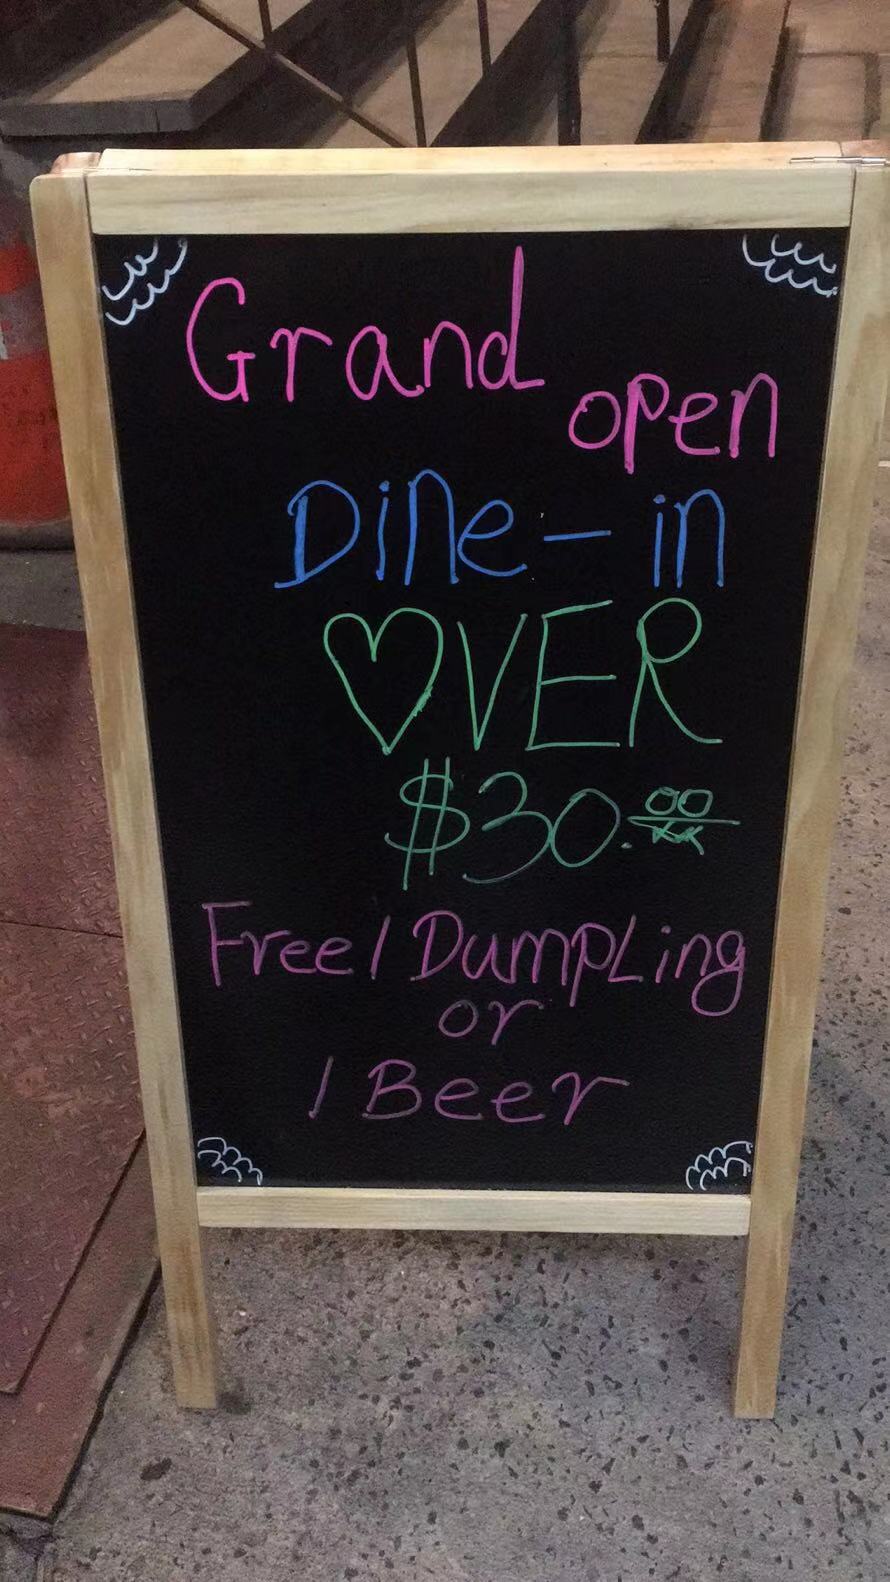 Grand
open
Dine-in
♡VER
$30.00/xx
Free 1 Dumpling
or
1 Beer